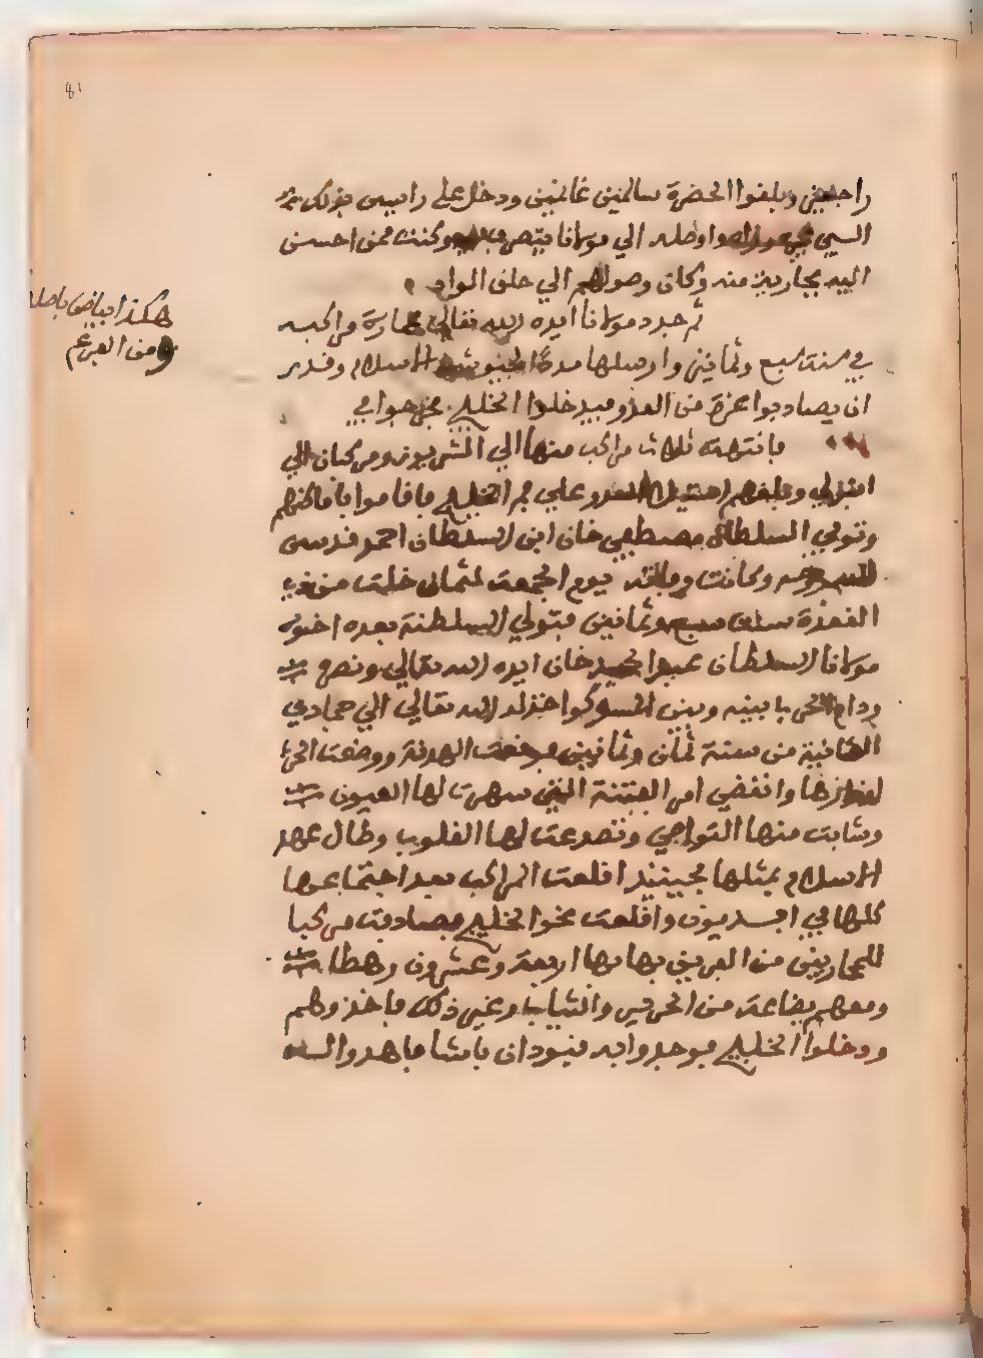 81
راجعين وبلغوا الحضرة سالمين غانمين ودخل علي رايس
الي مولانا وكنت ممن احسن
اليه بجارية منه وكان وصولهم الي حلق الواد
ثم جدد مولانا ايده الله تعالي عمارة مراكبه
في سنة سبع وثمانين وارسلها مددًا لجنود الاسلام وقدر
ان يصادفوا غرة من العدو فيدخلوا الخليج
فانتهت ثلاث مراكب منها الي
العدو علي فم الخليج فاقاموا باماكنهم
وتوفي السلطان مصطفي خان ابن السلطان احمد قدس
الله روحه وكانت وفاته يوم الجمعة لثمان خلت من ذي
القعدة سنة سبع وثمانين فتولي السلطنة بعده اخوه
مولانا السلطان عبد الحميد خان ايده الله تعالي ونصره
ودام الحرب بينه وبين المسوكوا خذله الله تعالي الي جمادي
الثانية من سنة ثمان وثمانين فوقعت الهدنة ووضعت الحرب
اوزارها وانقضي امر الفتنة التي سهرت لها العيون
وشابت منها النواصي وتصدعت لها القلوب وطال عهد
الاسلام بمثلها فحينئذ اقلعت المراكب بعد اجتماعها
كلها في واقلعت نحو الخليج فصادفت مركبا
للمحاربين من بها اربعة وعشرون رهطا
ومعهم بضاعة من الحرير والثياب وغير ذلك فاخذوهم
ودخلوا الخليج فوجدوا به قبودان باشا فاهدوا اليه
هكذا بياض باصله
ومن